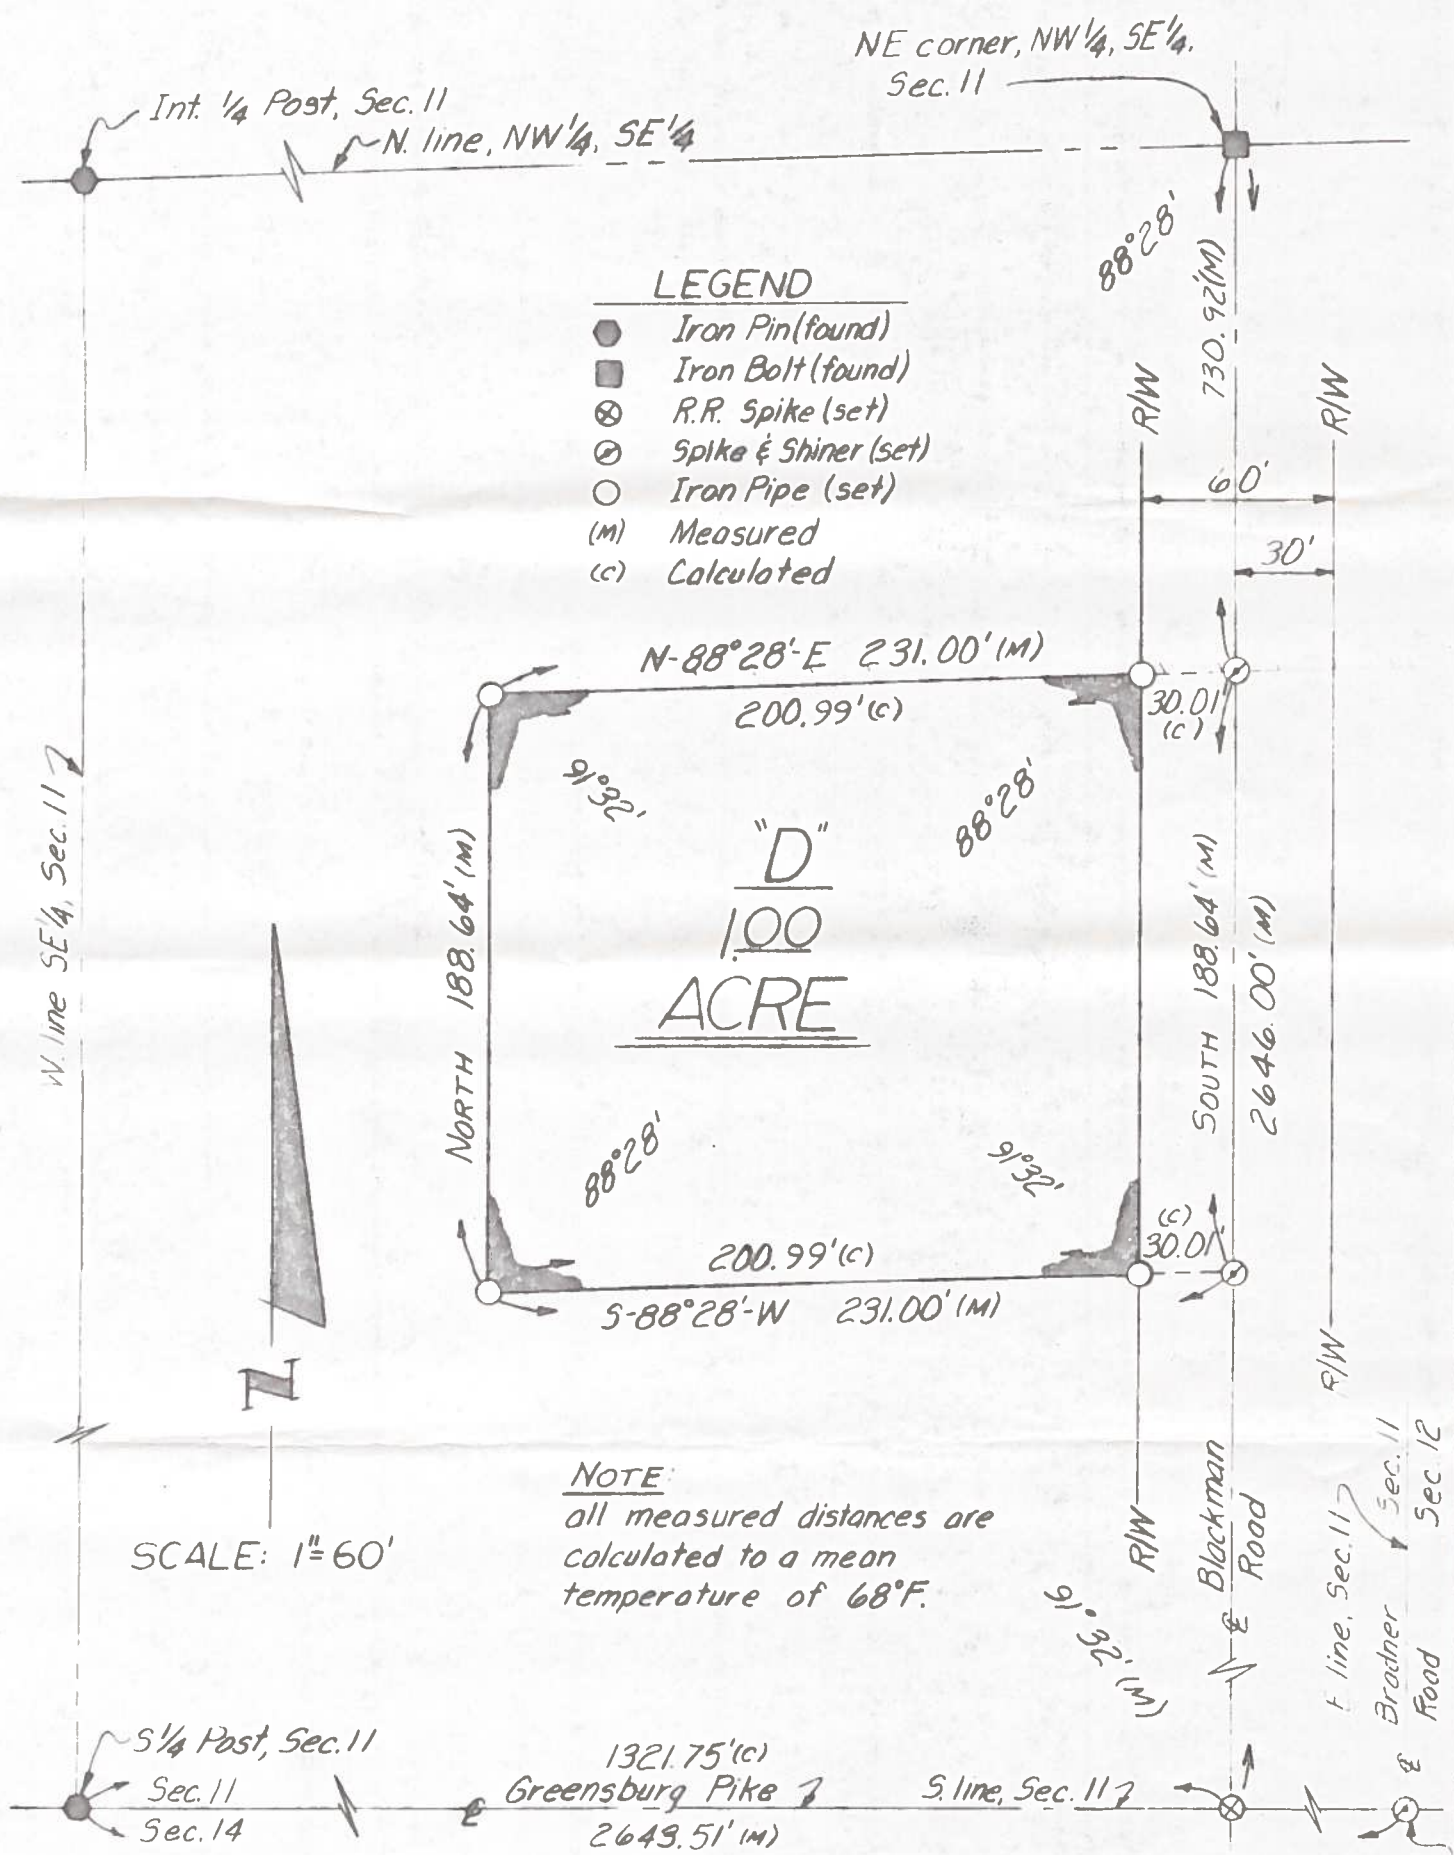 NE corner, NW 1/4, SE 1/4,
Sec. 11
Int. 1/4 Post, Sec. 11
N. line, NW 1/4, SE 1/4
88°28'
730.92'(M)
LEGEND
Iron Pin (found)
Iron Bolt (found)
R.R. Spike (set)
Spike & Shiner (set)
Iron Pipe (set)
(M) Measured
(C) Calculated
R/W
R/W
60'
30'
N-88°28'-E 231.00' (M)
200.99' (C)
30.01'
(C)
91°32'
88°28'
W. line SE 1/4, Sec. 11
NORTH 188.64' (M)
"D"
1.00
ACRE
SOUTH 188.64' (M)
2646.00' (M)
88°28'
91°32'
(C)
30.01'
200.99' (C)
S-88°28'-W 231.00' (M)
N
SCALE: 1"=60'
NOTE:
all measured distances are
calculated to a mean
temperature of 68°F.
R/W
R/W
℄ Blackman
Road
91°32' (M)
E line, Sec. 11
Sec. 11
Sec. 12
℄ Bradner
Road
S 1/4 Post, Sec. 11
Sec. 11
Sec. 14
1321.75' (C)
℄ Greensburg Pike
2643.51' (M)
S. line, Sec. 11